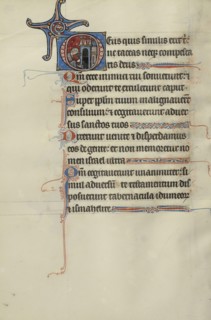 Deus quis similis erit t:
ne taceas neq; compesca
ris deus
Qm ecce inimici tui sonuerunt: et
qui oderunt te extulerunt caput
Super pplm tuum malignauerunt
consilium: et cogitauerunt aduer
sus sanctos tuos
Dixerunt uenite et disperdamus
eos de gente: et non memoretur no
men israel ultra
Qm cogitauerunt unanimiter: si
mul aduersum te testamentum dis
posuerunt tabernacula idumeorum
et ismahelite